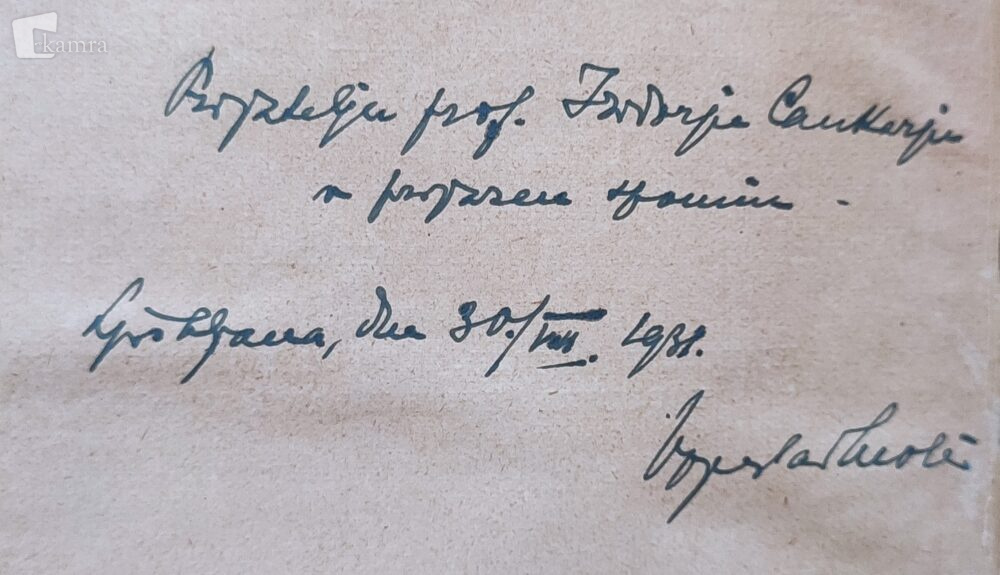 kamra
Prijatelju prof. Izidorju Cankarju
v prijazen spomin.
Ljubljana, dne 30./VIII. 1931.
Vojeslav Molè